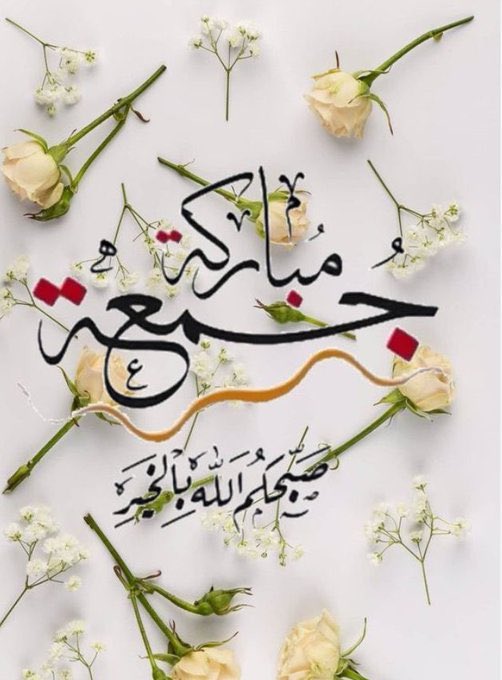 جُمعة
مُباركة
صَبَّحَكُم اللَّه بِالخَيرِ